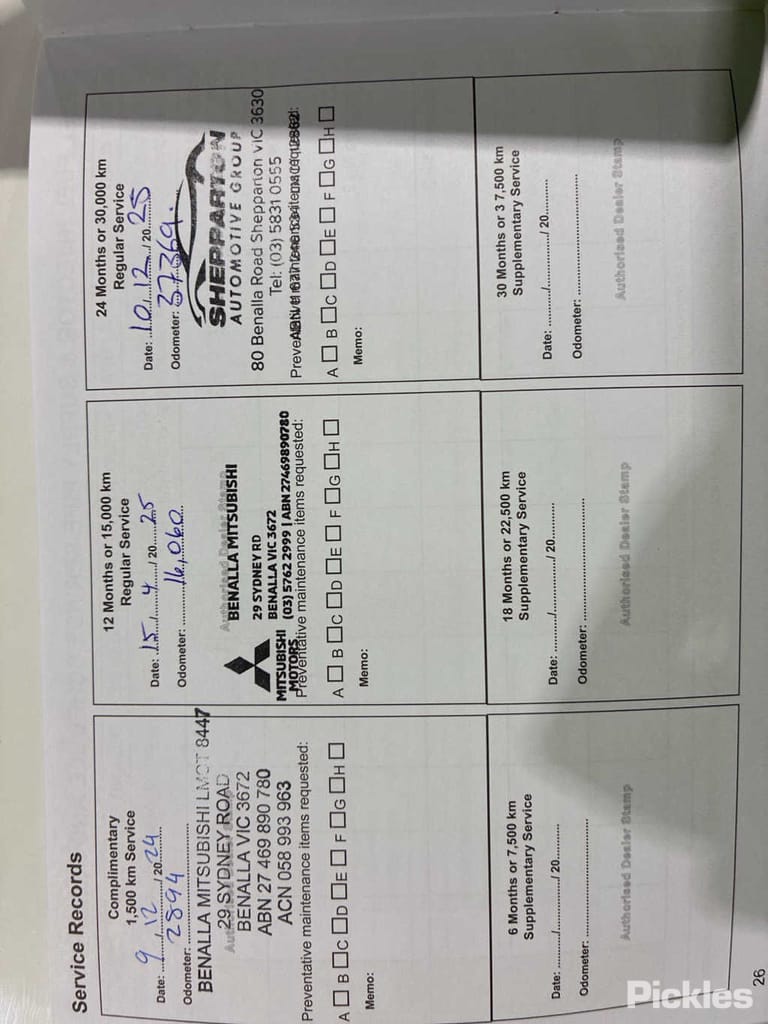 Service Records
Complimentary
1,500 km Service
Date: 9/12/2024
Odometer: 2894
BENALLA MITSUBISHI LMCT 8447
Authorised Dealer Stamp
29 SYDNEY ROAD
BENALLA VIC 3672
ABN 27 469 890 780
ACN 058 993 963
Preventative maintenance items requested:
A □ B □ C □ D □ E □ F □ G □ H □
Memo:
12 Months or 15,000 km
Regular Service
Date: 15/4/2025
Odometer: 16,060
Authorised Dealer Stamp
BENALLA MITSUBISHI
29 SYDNEY RD
BENALLA VIC 3672
(03) 5762 2999 | ABN 27469890780
MITSUBISHI
MOTORS
Preventative maintenance items requested:
A □ B □ C □ D □ E □ F □ G □ H □
Memo:
24 Months or 30,000 km
Regular Service
Date: 10/12/2025
Odometer: 37369.
SHEPPARTON
AUTOMOTIVE GROUP
80 Benalla Road Shepparton VIC 3630
Tel: (03) 5831 0555
Preventative maintenance items requested:
A □ B □ C □ D □ E □ F □ G □ H □
Memo:
6 Months or 7,500 km
Supplementary Service
Date: ........../........../ 20..........
Odometer: ..............................
Authorised Dealer Stamp
18 Months or 22,500 km
Supplementary Service
Date: ........../........../ 20..........
Odometer: ..............................
Authorised Dealer Stamp
30 Months or 3 7,500 km
Supplementary Service
Date: ........../........../ 20..........
Odometer: ..............................
Authorised Dealer Stamp
26
Pickles